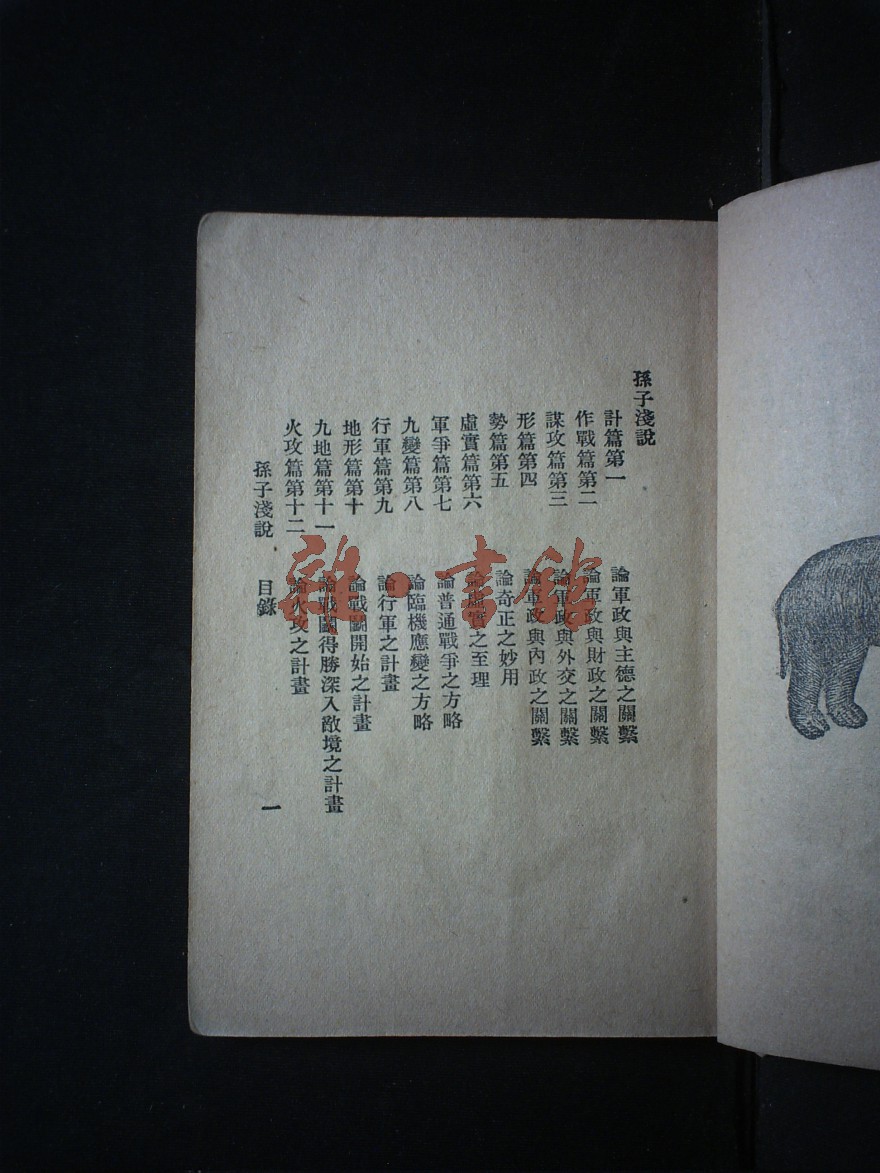 孫子淺說
計篇第一 論軍政與主德之關繫
作戰篇第二 論軍政與財政之關繫
謀攻篇第三 論軍政與外交之關繫
形篇第四 論軍政與內政之關繫
勢篇第五 論奇正之妙用
虛實篇第六 論虛實之至理
軍爭篇第七 論普通戰爭之方略
九變篇第八 論臨機應變之方略
行軍篇第九 論行軍之計畫
地形篇第十 論戰鬭開始之計畫
九地篇第十一 論戰鬭得勝深入敵境之計畫
火攻篇第十二 論火攻之計畫
孫子淺說 目錄 一
雜·書館